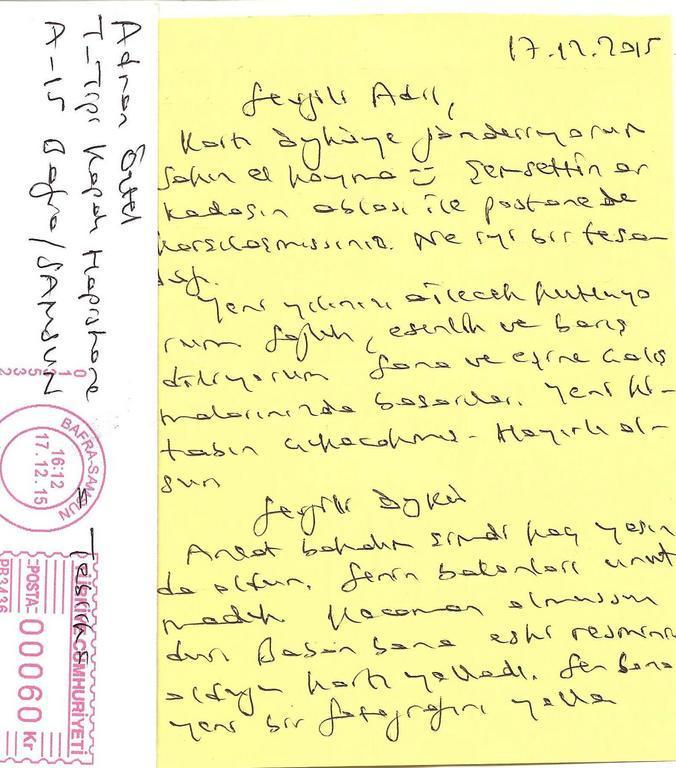 17.12.2015
Sevgili Adil,
Kartı Öykü'ye gönderiyorum
sakın el koyma Şemsettin ar
kadaşın ablası ile postanede
karşılaşmışsınız. Ne iyi bir tesa-
düf.
Yeni yılınızı ailecek kutluyo
rum sağlık, esenlik ve barış
diliyorum Sana ve eşine çalış
malarınızda başarılar. Yeni ki-
tabın çıkacakmış - Hayırlı ol-
sun
Sevgili Öykü
Anlat bakalım şimdi kaç yaşın
da oldun. Senin bakanları unut
madık Kocaman olmuşsun
dur Baban bana eski resminin
olduğu kartı yolladı. Sen bana
yeni bir fotoğrafını yolla
Adnan Öztel
T-Tipi Kapalı Hapishane
A-15 Bafra/SAMSUN
BAFRA-SAMSUN
16:12
17.12.15
TÜRKİYE CUMHURİYETİ
POSTA
00060 Kr
PR3436